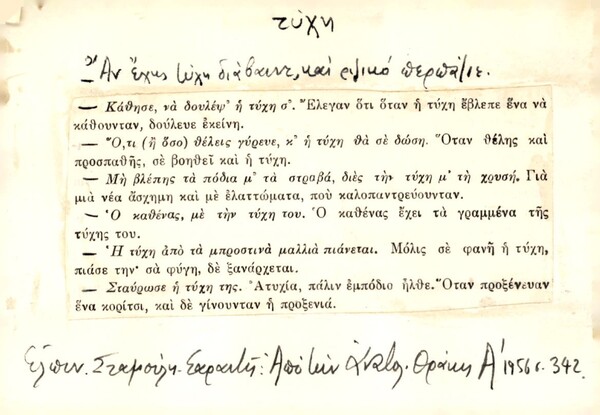 τύχη
Ἂν ἔχῃς τύχη διάβαινε, καὶ ριζικό περπάτιε.
— Κάθησε, νὰ δουλέψ' ἡ τύχη σ'. Ἔλεγαν ὅτι ὅταν ἡ τύχη ἔβλεπε ἕνα νὰ
κάθουνταν, δούλευε ἐκείνη.
— Ὅ,τι (ἢ ὅσο) θέλεις γύρευε, κ' ἡ τύχη θὰ σὲ δώση. Ὅταν θέλης καὶ
προσπαθῆς, σὲ βοηθεῖ καὶ ἡ τύχη.
— Μὴ βλέπης τὰ πόδια μ' τὰ στραβά, διὲς τὴν τύχη μ' τὴ χρυσή. Γιὰ
μιὰ νέα ἄσχημη καὶ μὲ ἐλαττώματα, ποὺ καλοπαντρεύουνταν.
— Ὁ καθένας, μὲ τὴν τύχη του. Ὁ καθένας ἔχει τὰ γραμμένα τῆς
τύχης του.
— Ἡ τύχη ἀπὸ τὰ μπροστινὰ μαλλιὰ πιάνεται. Μόλις σὲ φανῆ ἡ τύχη,
πιάσε την· σὰ φύγη, δὲ ξανάρχεται.
— Σταύρωσε ἡ τύχη της. Ἀτυχία, πάλιν ἐμπόδιο ἦλθε. Ὅταν προξένευαν
ἕνα κορίτσι, καὶ δὲ γίνουνταν ἡ προξενιά.
Ἐλπιν. Σταμούλη-Σαραντῆ: Ἀπὸ τὴν Ἀνατολ. Θράκης Α' 1956 σ. 342.